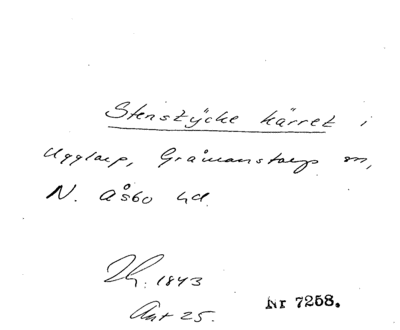 Stenstycke kärret i
Ugglarp, Gråmanstorps sn,
N. Åsbo hd.
Th. 1843
Akt 25.
Nr 7258.